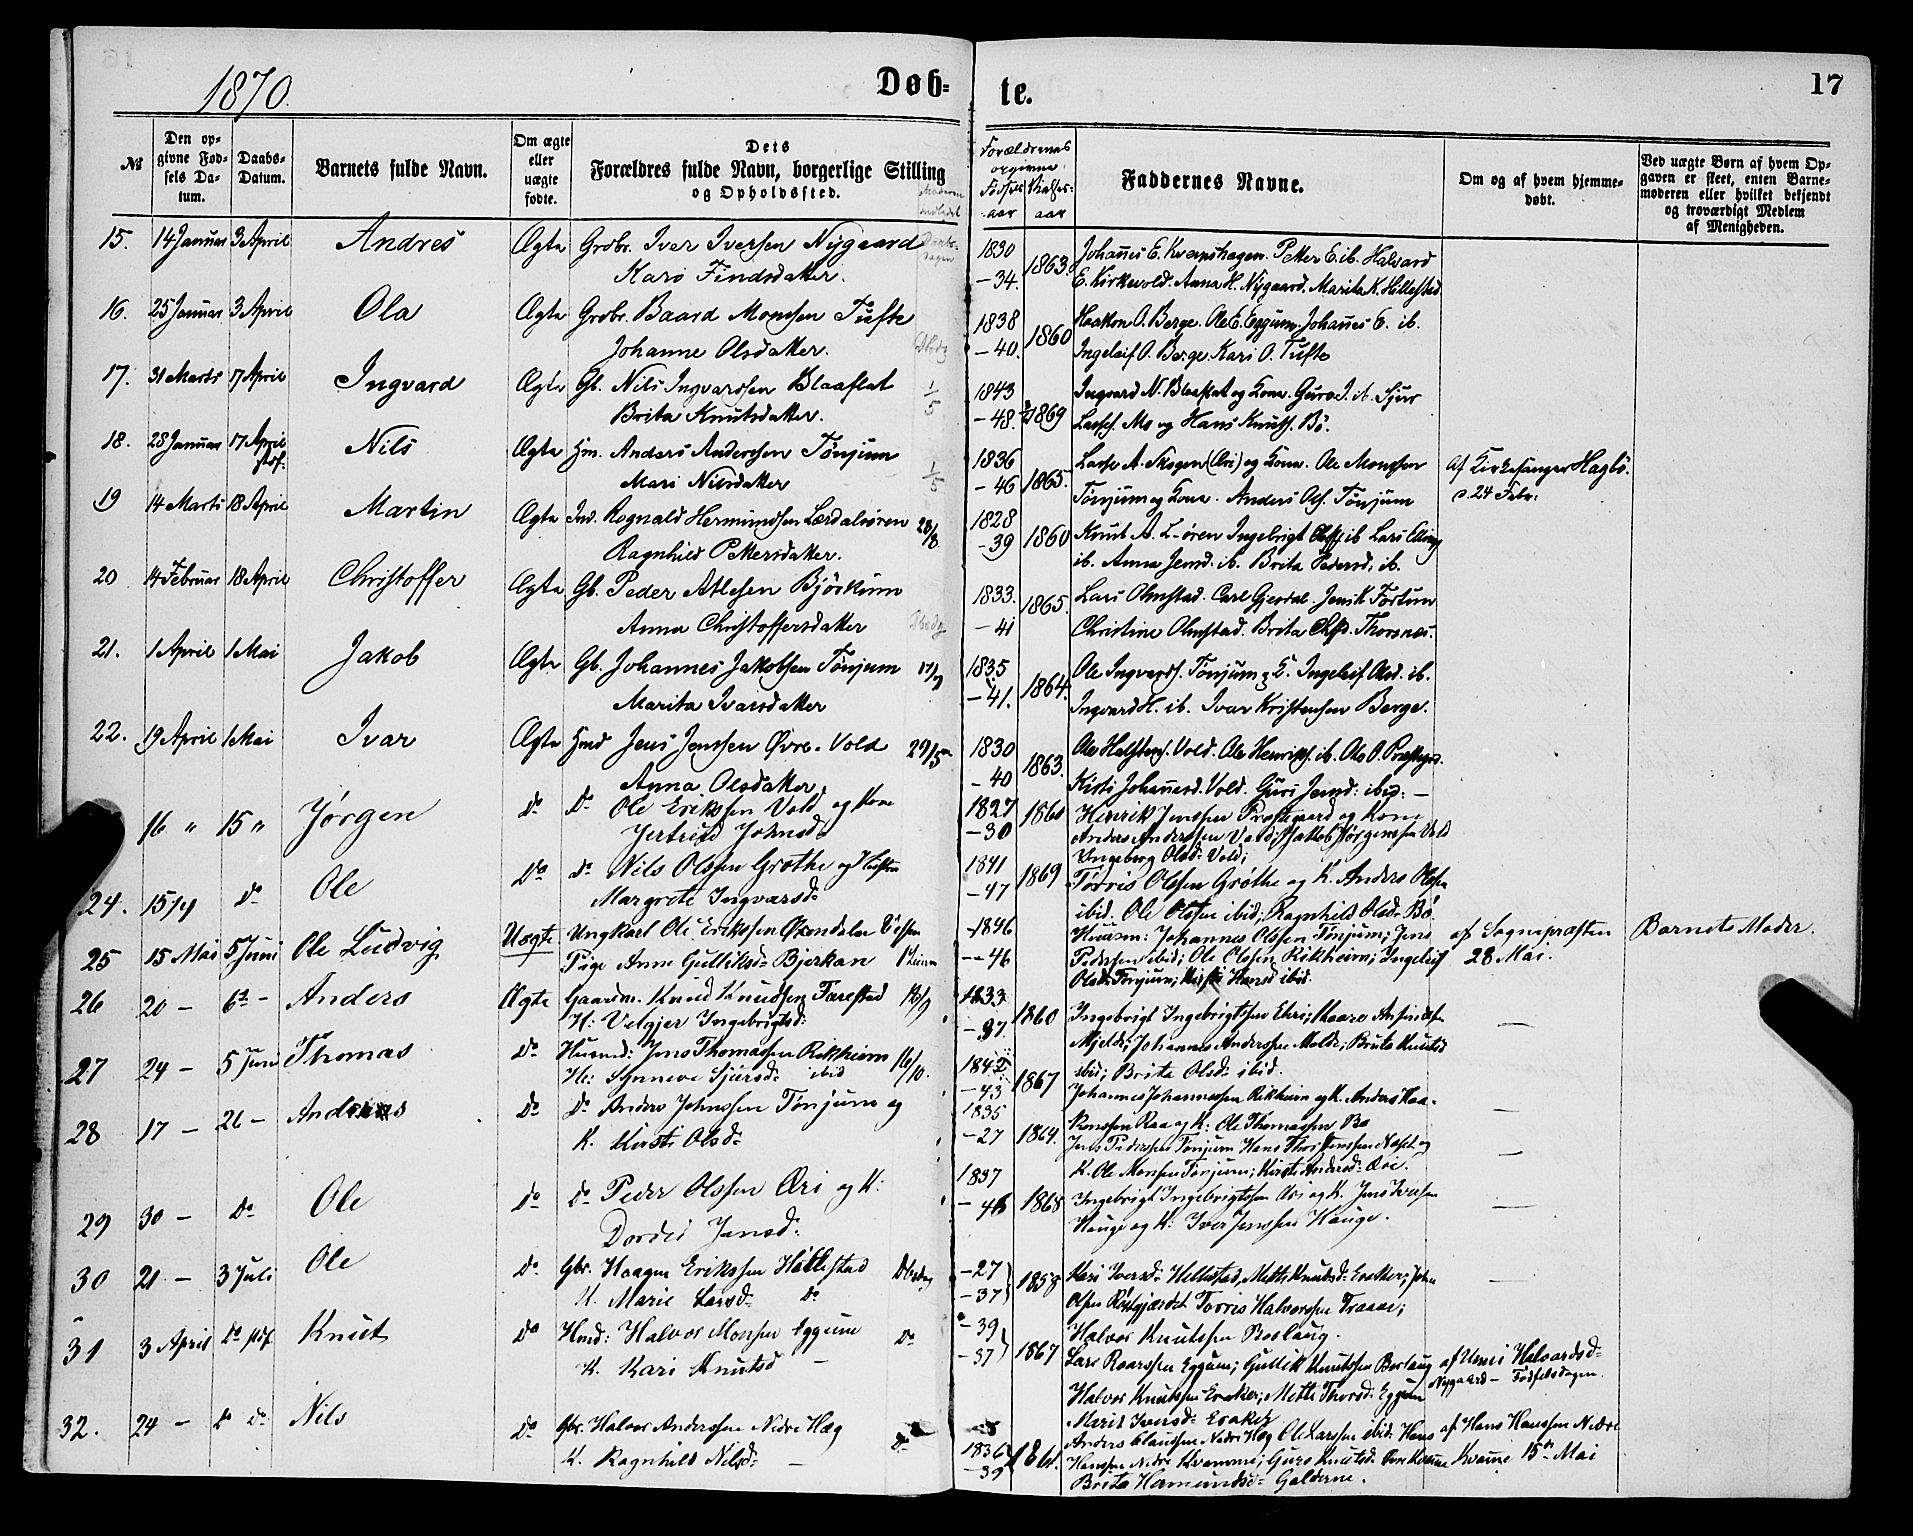 1870.
Døb-
te.
17
№
Den opgivne Fødsels Datum.
Daabs-Datum.
Barnets fulde Navn.
Om ægte eller uægte fødte.
Dets Forældres fulde Navn, borgerlige Stilling og Opholdssted.
Forældrenes opgivne Fødselsaar
Faddernes Navne.
Om og af hvem hjemmedøbt.
Ved uægte Børn af hvem Opgaven er skeet, enten Barnemoderen eller hvilket bekjendt og troværdigt Medlem af Menigheden.
15. 14 Januar 3 April Andres Ægte Grdbr. Iver Iversen Nygaard 1830 1863 Johannes E. Kvamshagen. Petter E. ib. Halvard
Kari Findsdatter. -34. E. Kirkevold. Anna H. Nygaard. Marita K. Hillestad.
16. 25 Januar 3 April Ola Ægte Grdbr. Baard Monsen Tufte 1838 1860 Haakon O. Berge. Ole E. Eggum. Johannes E. ib.
Johanne Olsdatter. -40. Ingeleif O. Berge. Kari O. Tufte
17. 31 Marts 17 April Ingvard Ægte Gb. Nils Ingvardsen Blaaflat 1/5 1843 1869 Ingvard N. Blaaflat og Kone. Guro I. ib. Sjur
Brita Knutsdatter. -48. Lasses. Mo og Hans Knuts. Bø.
18. 28 Januar 17 April stdf. Nils Ægte Hm. Anders Andersen Tønjum 1/5 1836 1865. Lasse A. Skogen (Æri) og Kone. Ole Monsen Af Kirkesanger Hagbø.
Mari Nilsdatter -46 Tønjum og Kone. Anders Ols. Tønjum d. 24 Febr.
19 14 Marts 18 April Martin Ægte Ind. Rognald Hermundsen Lærdalsøren 28/8 1828 1860 Knut A. L-øren Ingebrigt ib. Lars
Ragnhild Pettersdatter. -39 ib. Anna Jensd. ib. Brita Pedersd. ib.
20 14 Februar 18 April Christoffer Ægte Gb. Peder Atlesen Bjørkum 1833. 1865. Lars Olmstad. Carl Gjerdal. Jens K. Fortun
Anna Christoffersdatter -41 Christine Olmstad. Brita Thorsnes.
21. 1 April 1 Mai Jakob Ægte Gb. Johannes Jakobsen Tønjum 1835 1864. Ole Ingvards. Tønjum & K. Ingeleif Olsd. ib.
Marita Ivarsdatter -41. Ingvard H. ib. Ivar Kristensen Berge.
22. 19 April 1 Mai Ivar Ægte Hmd Jens Jensen Øvre-Vold 29/5 1830 1863. Ole Halstens. Vold. Ole Henriks. ib. Ole O. Præstegrd.
Anna Olsdatter -40 Kirsti Johannesd. Vold. Guri Jensd. ibid. —
16 " 15 " Jørgen Do Do Ole Erikssen Vold og Kone 1827 1860 Henrik Jenssen Præstegaard og Kone
Jertrud Johnsd: -30 Anders Anderssen Vold; Jakob Jørgenssen Vold
Ingeborg Olsd: Vold;
24. 15/4 Do Ole Do Do Nils Olssen Grøthe og Hustru 1841 1869 Tørris Olssen Grøthe og K. Anders Olssen
Margrete Ingvarsd: -47 ibid. Ole Olssen ibid; Ragnhild Olsd: Bø.
25 15 Mai 5 Juni Ole Ludvig Uægte Ungkarl Ole Erikssen Øxendalen -1846 Huusm: Johannes Olssen Tønjum; Jens af Sognepræsten Barnets Moder.
Pige Anne Gulliksd: Bjerkan --46 Pederssen ibid; Ole Olssen Rikheim; Ingeleif 28 Mai.
Olsd: Tønjum; Kirsti Hansd ibid.
26 20 – 6te – Anders Ægte Gaardm. Knud Knudssen Færestad 18/9 1833 1860 Ingebrigt Ingebrigtssen Ehri;
H: Velgjer Ingebrigtsd: -37. Mjelde; Johannes Anderssen Molde; Brita Knutsd
27 24 – 5 Juni Thomas Do Husmd: Jens Thomassen Rikheim 16/10. 1842 1867 ibid; Brita Olsd: ibid.
H: Synneve Sjursd: ibid -43 Johannes Johannessen Rikheim og K. Anders Haa-
28 17 – 26 – Andreas Do Do Anders Johnssen Tønjum og 1835 1864. konssen Raa og K: Ole Thomassen Bø
K. Kirsti Olsd: -27 Jens Pederssen Tønjum Hans Jenssen Næset og
K. Ole Monsen Tønjum; Kirsti Andersd: Æri.
29 30 – Do Ole Do Do Peder Olssen Æri og K: 1837 1868 Ingebrigt Ingebrigtssen Æri og K. Jens Iverssen
Dorded Jensd: -46 Hauge og K: Iver Jenssen Hauge.
30 21 – 3 Juli Ole Do Gbr. Haagen Erikssen Hillestad Dbsdag -27 1858 Kari Iversd: Hillestad, Mette Knutsd: Eraker; John
K. Marie Larsd: Do -37 Olsen Torris Halvorssen Traaae;
Halvor Knutssen Borlaug.
31 3 April Do stdf. Knut Do Hmd: Halvor Monsen Eggum Do -39 1867 Lars Roarssen Eggum; Gullik Knutssen Borlaug af Unni Halvardsd:
K. Kari Knutsd – -37 Halvor Knutssen Eraker; Mette Thorsd: Eggum Nygaard – Fødselsdagen.
Marit Iversd: Eraker
32. 24 – Do Do Nils Do Gbr. Halvor Anderssen Nedre Hæg Do 1836 1861. Anders Claussen Nedre Hæg Ole Larssen ibid. Hans af Hans Hanssen Nedre
K. Ragnhild Nilsd: – -39 Hanssen Nedre Kvamme; Guro Knutsd: Øvre Kvamme Kvamme 15de Mai
Brita Hermundsd: Galderne.